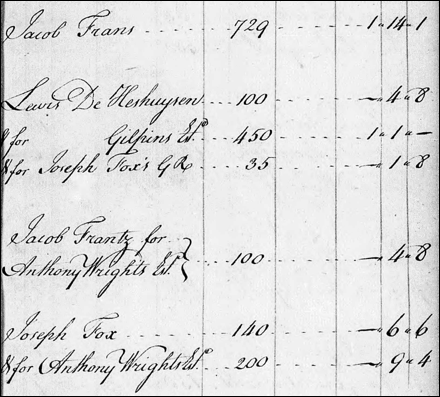 Jacob Frans 729 1 " 14 " 1
Lewis De Heshuysen 100 — " 4 " 8
& for Gilpins Est. 450 1 " 1 " —
& for Joseph Fox's G R 35 — " 1 " 8
Jacob Frantz for
Anthony Wrights Est. } 100 — " 4 " 8
Joseph Fox 140 — " 6 " 6
& for Anthony Wrights Est. 200 — " 9 " 4